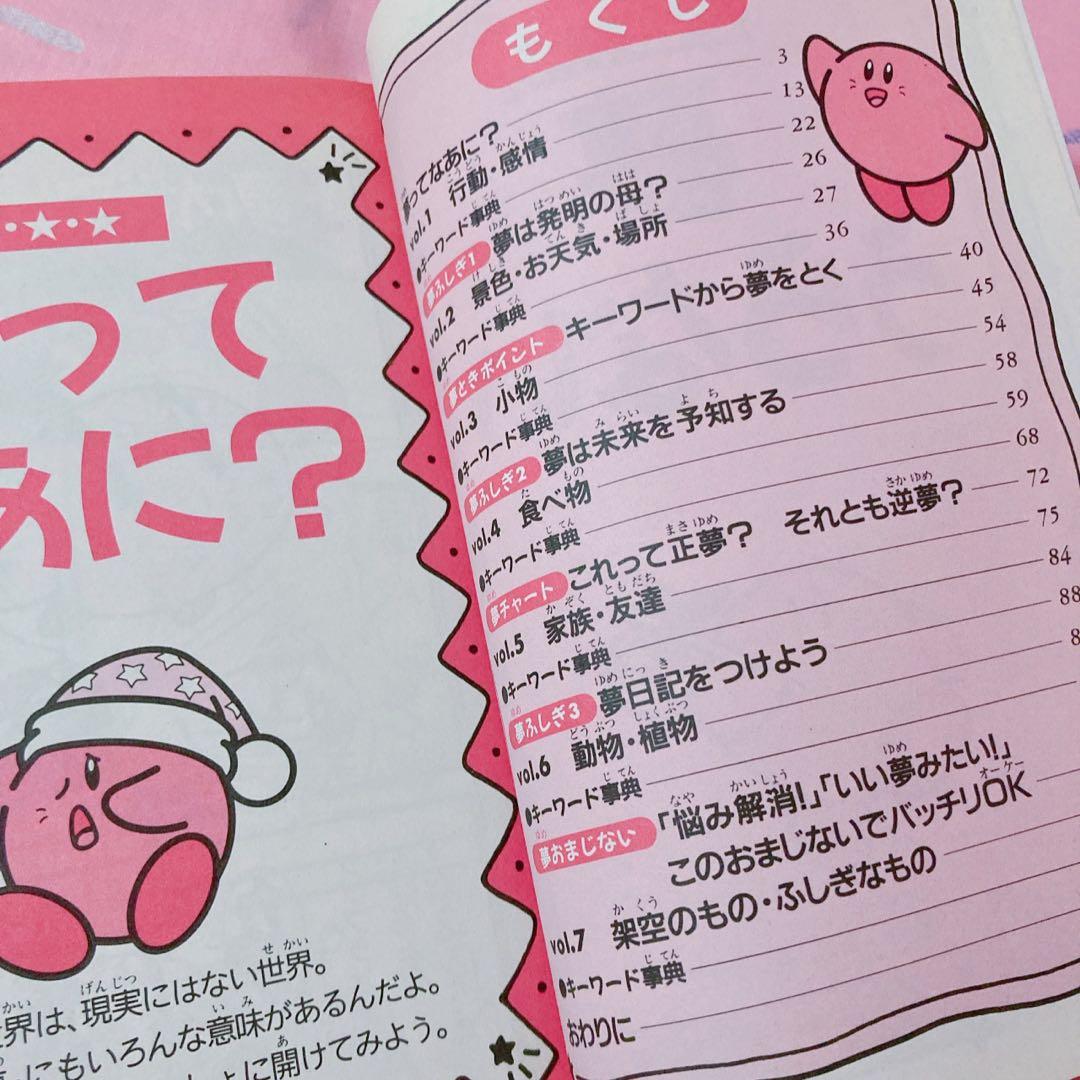 って
あに？
界は、現実にはない世界。
にもいろんな意味があるんだよ。
に開けてみよう。
もくじ
夢ってなあに？ 3
vol.1 行動・感情 13
●キーワード事典 22
夢ふしぎ1 夢は発明の母？ 26
vol.2 景色・お天気・場所 27
●キーワード事典 36
夢ときポイント キーワードから夢をとく 40
vol.3 小物 45
●キーワード事典 54
夢ふしぎ2 夢は未来を予知する 58
vol.4 食べ物 59
●キーワード事典 68
夢チャート これって正夢？ それとも逆夢？ 72
vol.5 家族・友達 75
●キーワード事典 84
夢ふしぎ3 夢日記をつけよう 88
vol.6 動物・植物 8
●キーワード事典
夢おまじない 「悩み解消！」「いい夢みたい！」
このおまじないでバッチリOK
vol.7 架空のもの・ふしぎなもの
●キーワード事典
おわりに